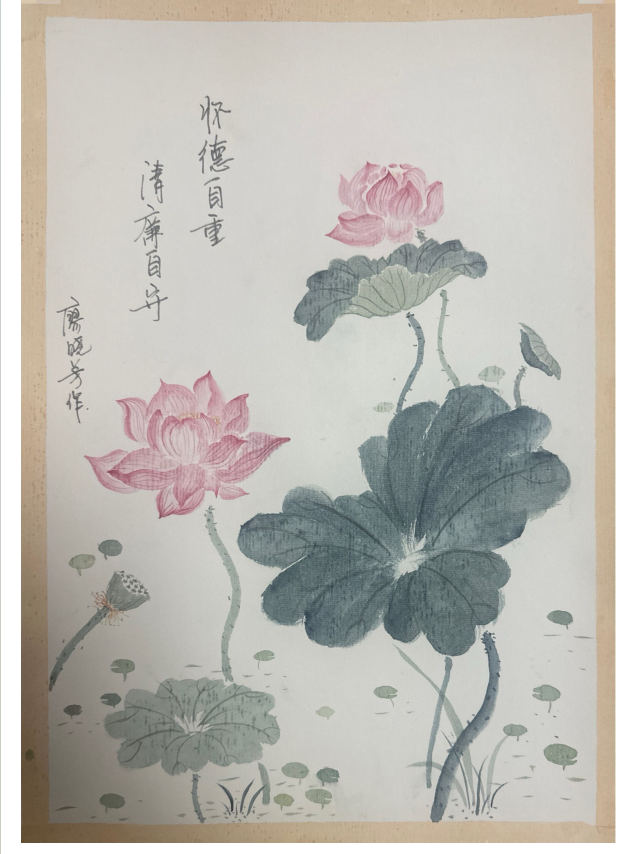 怀德自重
清廉自守
廖晓芳作